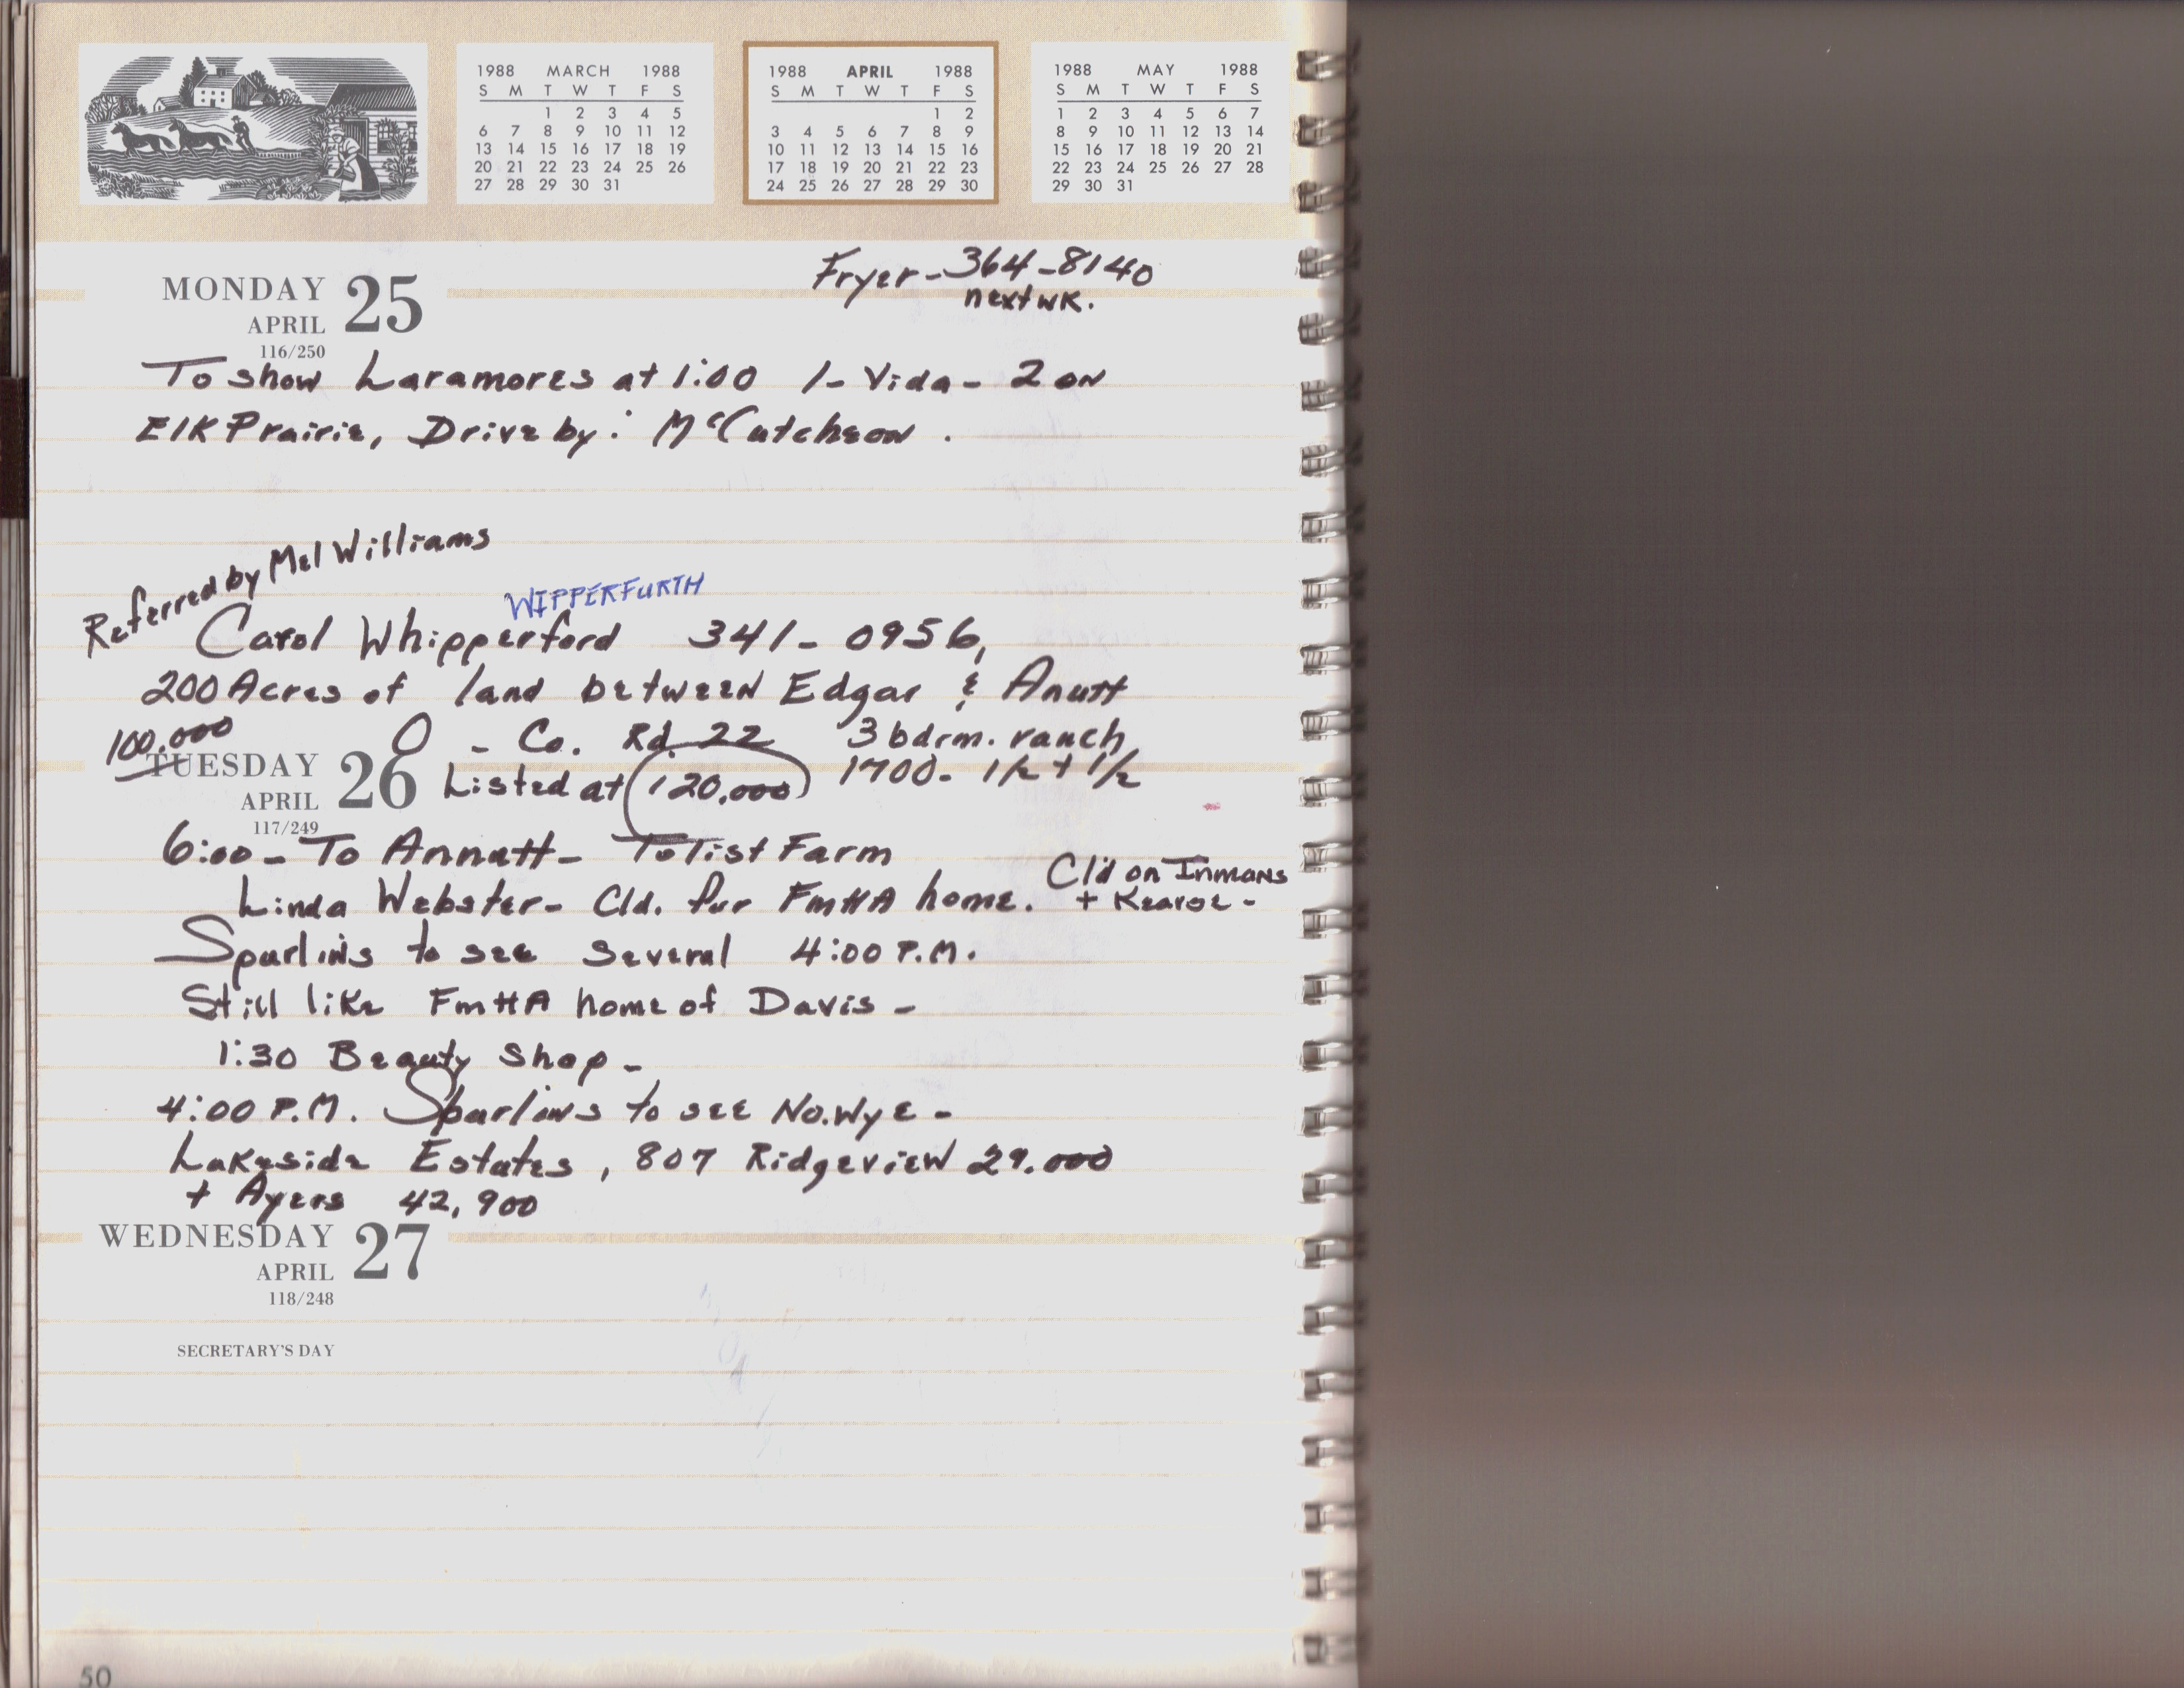 1988 MARCH 1988
S M T W T F S
1 2 3 4 5
6 7 8 9 10 11 12
13 14 15 16 17 18 19
20 21 22 23 24 25 26
27 28 29 30 31
1988 APRIL 1988
S M T W T F S
1 2
3 4 5 6 7 8 9
10 11 12 13 14 15 16
17 18 19 20 21 22 23
24 25 26 27 28 29 30
1988 MAY 1988
S M T W T F S
1 2 3 4 5 6 7
8 9 10 11 12 13 14
15 16 17 18 19 20 21
22 23 24 25 26 27 28
29 30 31
Fryer - 364-8140
next wk.
MONDAY 25
APRIL
116/250
To show Laramores at 1:00 1- Vida - 2 on
Elk Prairie, Drive by: McCutcheon.
Referred by Mel Williams
WIPPERFURTH
Carol Whipperford 341-0956,
200 Acres of land between Edgar & Anutt
100,000 O - Co. Rd. 22 3 bdrm. ranch
TUESDAY 26 Listed at (120,000) 1700- 1½ + 1/2
APRIL
117/249
6:00 - To Annutt - To list Farm
Linda Webster - Cld. for FmHA home. Cl'd on Inmans
+ Kearse -
Spurlins to see several 4:00 P.M.
Still like FmHA home of Davis -
1:30 Beauty Shop -
4:00 P.M. Spurlins to see No. Wye -
Lakeside Estates, 807 Ridgeview 29.000
+ Ayers 42,900
WEDNESDAY 27
APRIL
118/248
SECRETARY'S DAY
50